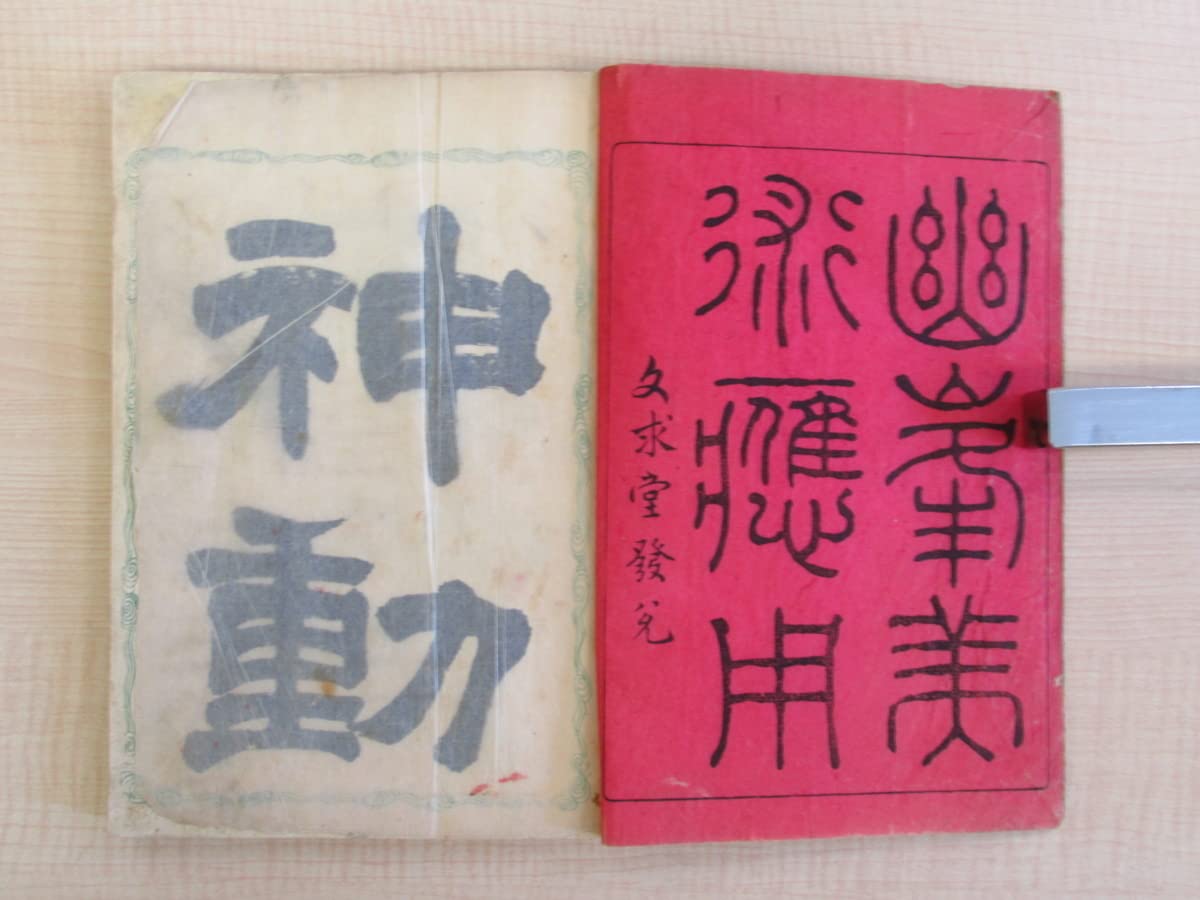 幽峯美
術應用
文求堂發兌
神動